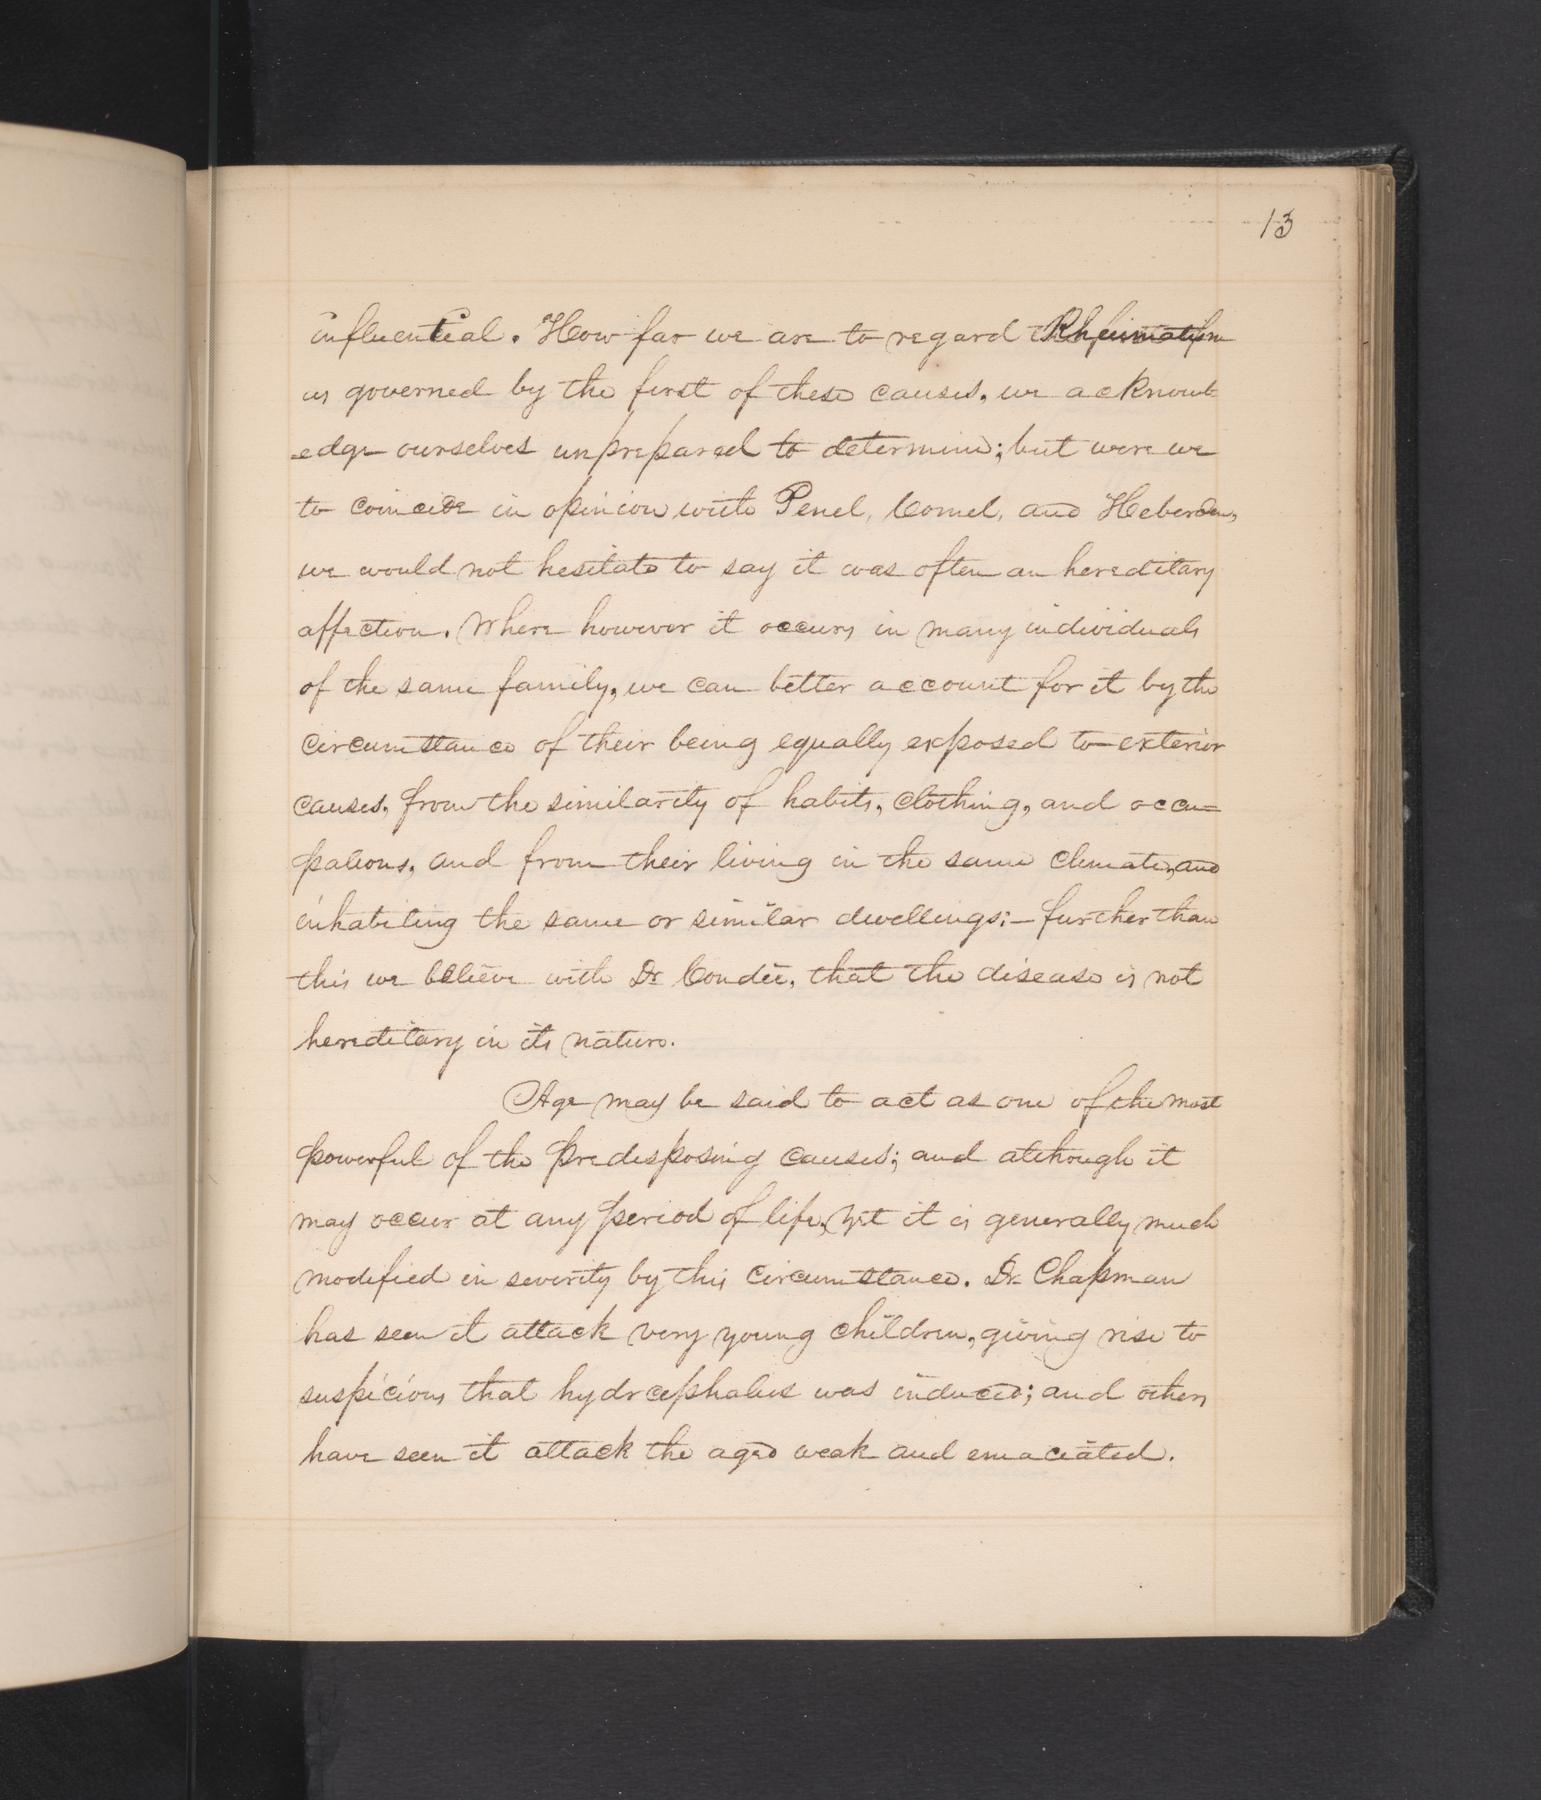 13
influential. How far we are to regard Rheumatism
as governed by the first of these causes, we acknowl-
edge ourselves unprepared to determine; but were we
to coincide in opinion with Penel, Comel, and Heberden,
we would not hesitate to say it was often an hereditary
affection. Where however it occurs in many individuals
of the same family, we can better account for it by the
circumstance of their being equally exposed to exterior
causes, from the similarity of habits, clothing, and occu-
pations, and from their living in the same climate, and
inhabiting the same or similar dwellings;— further than
this we believe with Dr. Condie, that the disease is not
hereditary in its nature.
Age may be said to act as one of the most
powerful of the predisposing causes; and although it
may occur at any period of life, yet it is generally much
modified in severity by this circumstance. Dr. Chapman
has seen it attack very young children, giving rise to
suspicions that hydrcephalus was induced; and others
have seen it attack the aged weak and emaciated.